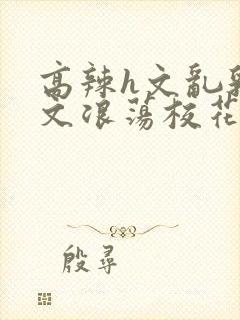 高辣h文乱乳
文浪荡校花
殷寻